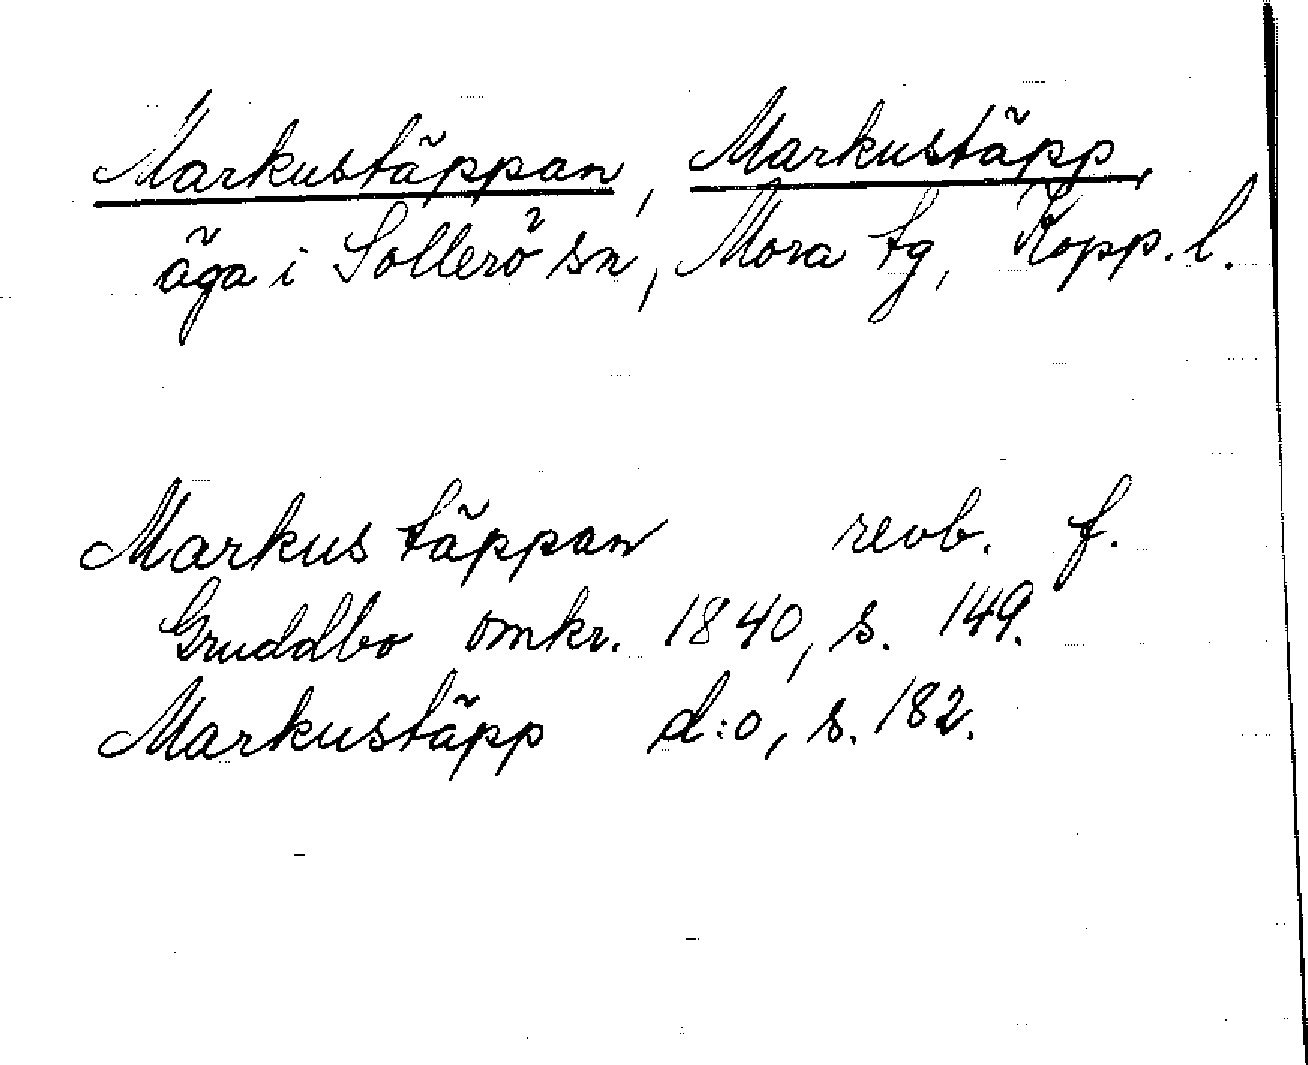 Markustäppan, Markustäpp,
äga i Sollerö sn, Mora tg, Kopp. l.
Markus täppan revb. f.
Gruddbo omkr. 1840, s. 149.
Markustäpp d:o, s. 182.